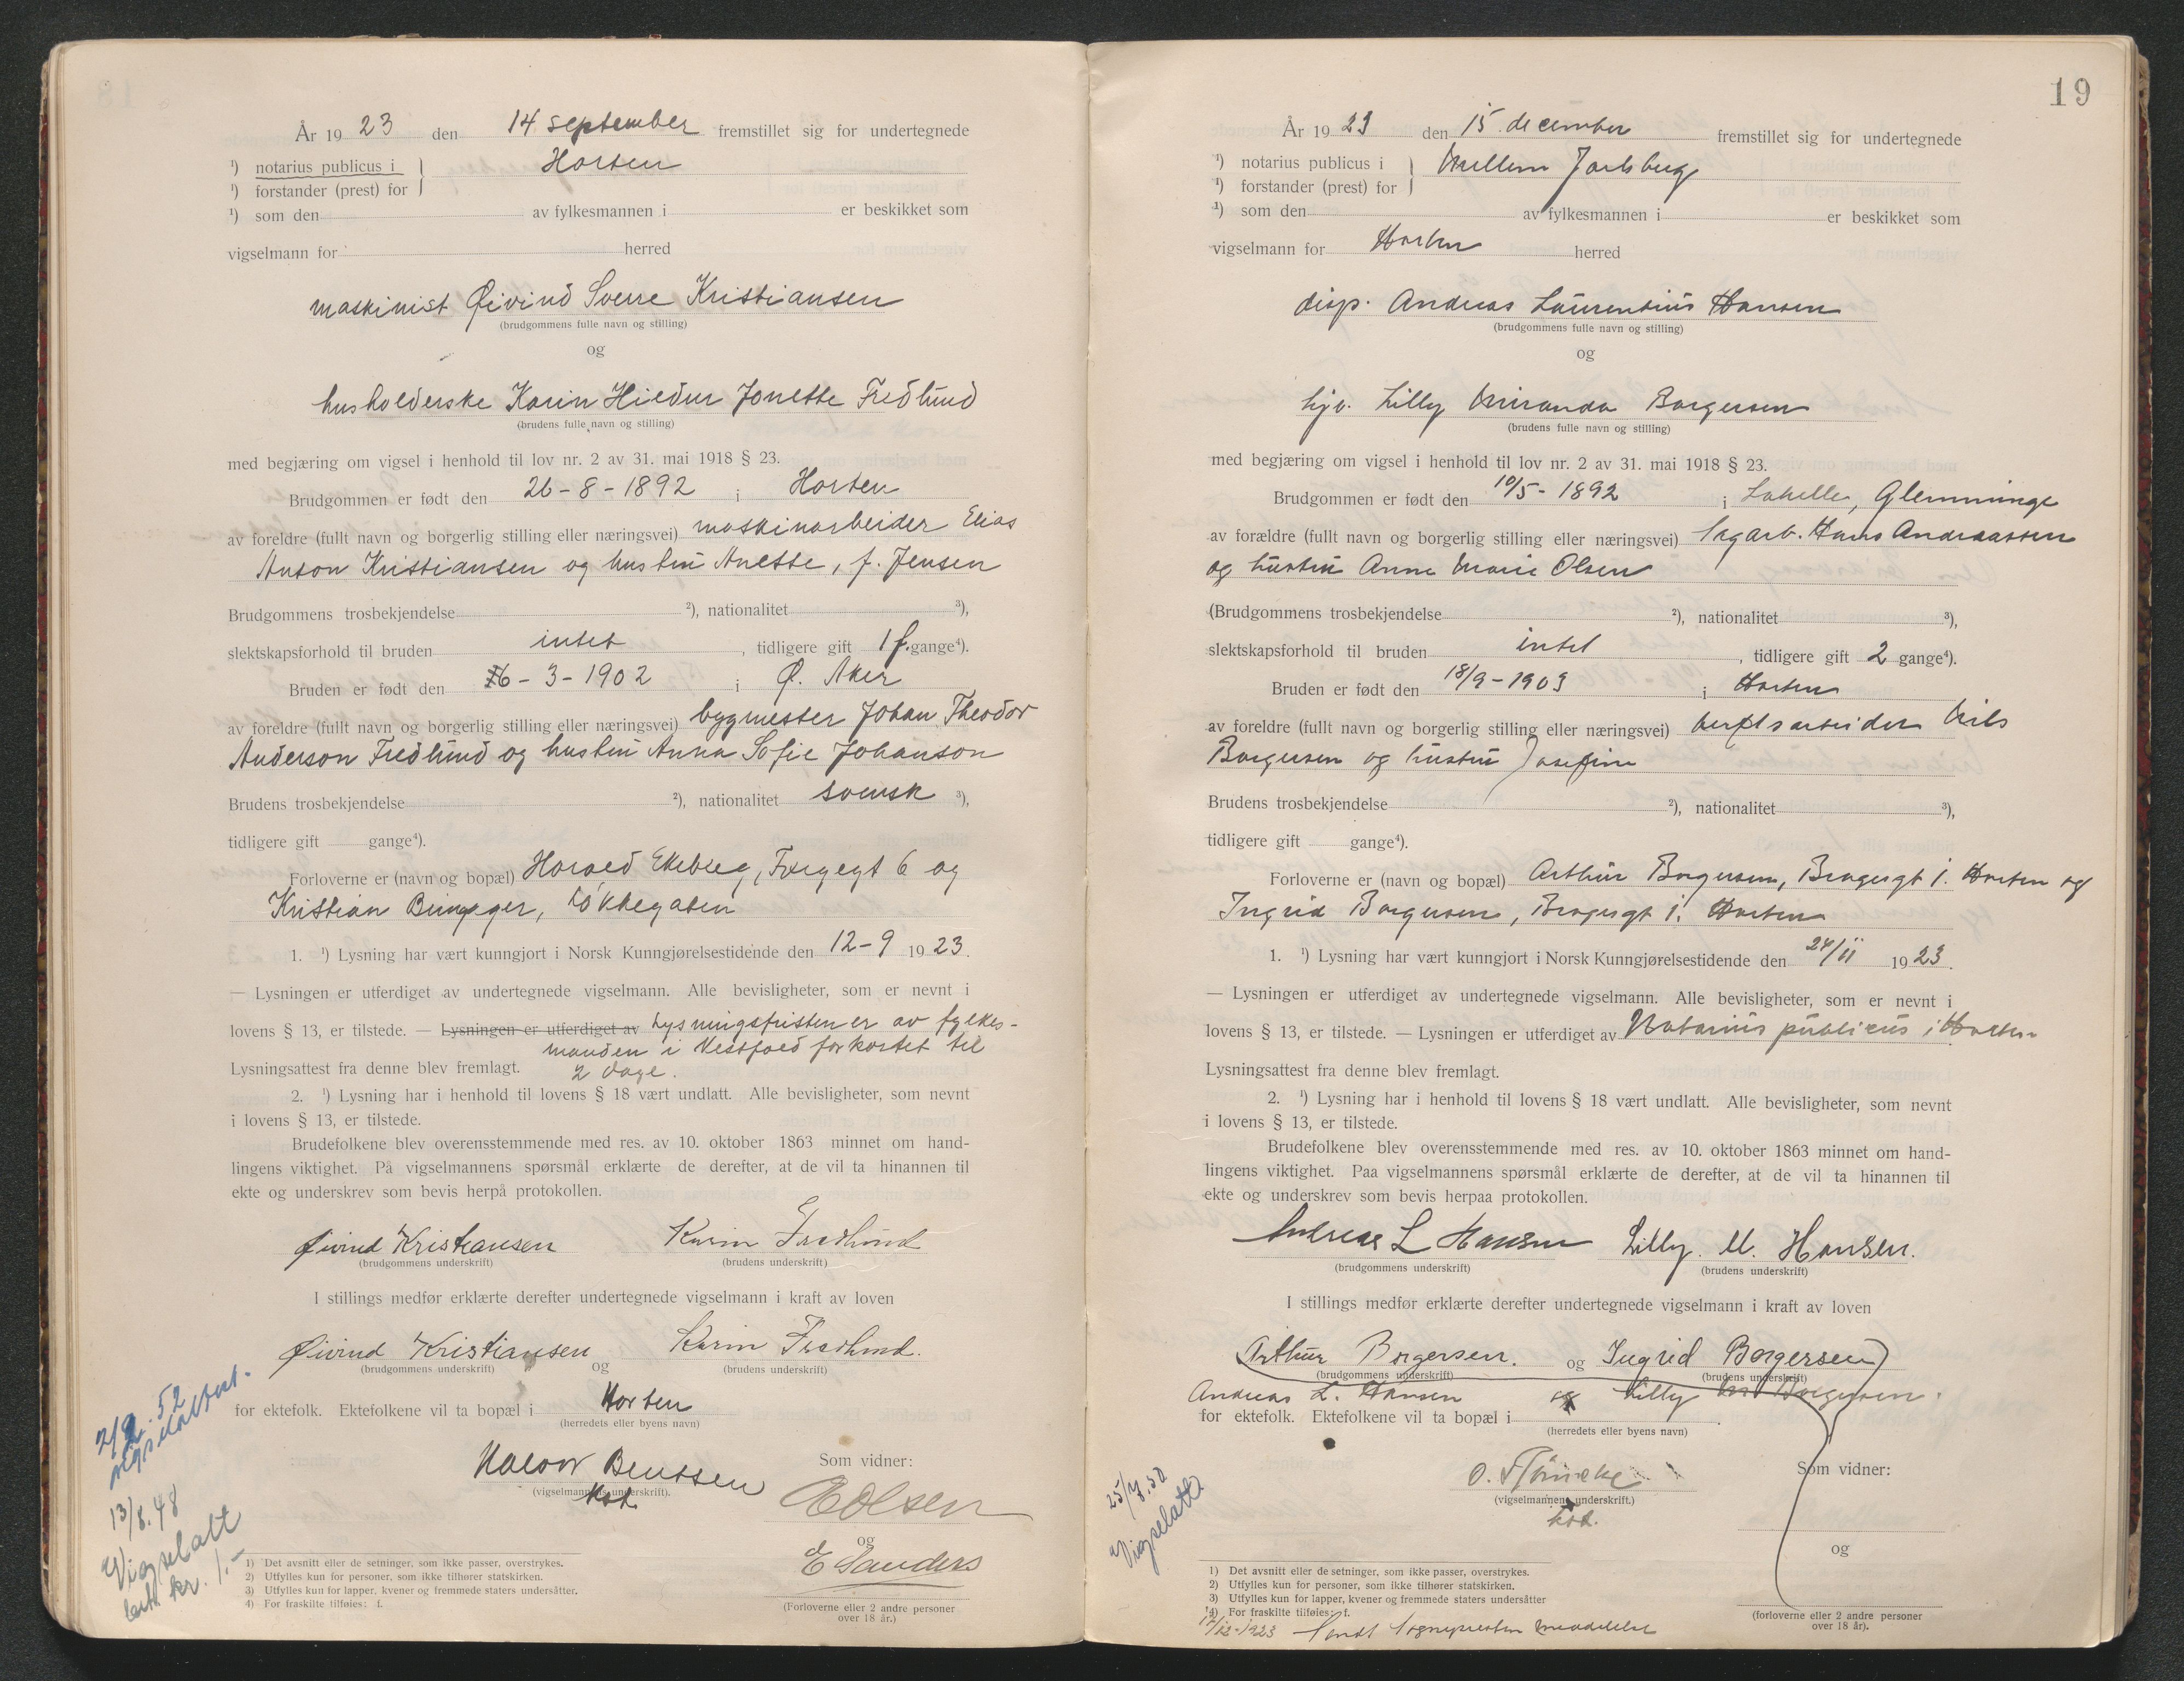 År 19 23 den 14 september fremstillet sig for undertegnede
¹) notarius publicus i } Horten
¹) forstander (prest) for
¹) som den av fylkesmannen i er beskikket som
vigselmann for herred
maskinist Øivind Sverre Kristiansen
(brudgommens fulle navn og stilling)
og
husholderske Karin Hildur Jonette Fredlund
(brudens fulle navn og stilling)
med begjæring om vigsel i henhold til lov nr. 2 av 31. mai 1918 § 23.
Brudgommen er født den 26-8-1892 i Horten
av foreldre (fullt navn og borgerlig stilling eller næringsvei) maskinarbeider Elias
Anton Kristiansen og hustru Anette, f. Jensen
Brudgommens trosbekjendelse ²), nationalitet ³),
slektskapsforhold til bruden intet, tidligere gift 1 f. gange⁴).
Bruden er født den 6-3-1902 i Ø. Aker
av foreldre (fullt navn og borgerlig stilling eller næringsvei) bygmester Johan Theodor
Anderson Fredlund og hustru Anna Sofie Johanson
Brudens trosbekjendelse ²), nationalitet svensk ³),
tidligere gift gange⁴).
Forloverne er (navn og bopæl) Harald Ekeberg, Færgegt 6 og
Kristian Løkkegaten
1. ¹) Lysning har vært kunngjort i Norsk Kunngjørelsestidende den 12-9 19 23.
— Lysningen er utferdiget av undertegnede vigselmann. Alle bevisligheter, som er nevnt i
lovens § 13, er tilstede. — Lysningen er utferdiget av Lysningsfristen er av fylkes-
manden i Vestfold forkortet til
Lysningsattest fra denne blev fremlagt. 2 dage.
2. ¹) Lysning har i henhold til lovens § 18 vært undlatt. Alle bevisligheter, som nevnt
i lovens § 13, er tilstede.
Brudefolkene blev overensstemmende med res. av 10. oktober 1863 minnet om hand-
lingens viktighet. På vigselmannens spørsmål erklærte de derefter, at de vil ta hinannen til
ekte og underskrev som bevis herpå protokollen.
Øivind Kristiansen Karin Fredlund
(brudgommens underskrift) (brudens underskrift)
I stillings medfør erklærte derefter undertegnede vigselmann i kraft av loven
Øivind Kristiansen og Karin Fredlund.
(brudgommens underskrift) (brudens underskrift)
for ektefolk. Ektefolkene vil ta bopæl i Horten
(herredets eller byens navn)
Halvor Bentsen Som vidner:
(vigselmannens underskrift).
kst. E Olsen
og
E Sanders
(Forloverne eller 2 andre personer
over 18 år.)
2/9.52
vigselattest.
13/8.48
Vigselatt
bet. kr. 1.-
1) Det avsnitt eller de setninger, som ikke passer, overstrykes.
2) Utfylles kun for personer, som ikke tilhører statskirken.
3) Utfylles kun for lapper, kvener og fremmede staters undersåtter.
4) For fraskilte tilføies: f.
19
År 19 23 den 15 december fremstillet sig for undertegnede
¹) notarius publicus i } Mellem Jarlsberg
¹) forstander (prest) for
¹) som den av fylkesmannen i er beskikket som
vigselmann for Horten herred
disp. Andreas Laurentius Hansen
(brudgommens fulle navn og stilling)
og
hjv. Lilly Miranda Borgersen
(brudens fulle navn og stilling)
med begjæring om vigsel i henhold til lov nr. 2 av 31. mai 1918 § 23.
Brudgommen er født den 10/5-1892 i Lahelle, Glemminge
av forældre (fullt navn og borgerlig stilling eller næringsvei) Sagarb. Hans Andreassen
og hustru Anne Marie Olsen
(Brudgommens trosbekjendelse ²), nationalitet ³),
slektskapsforhold til bruden intet, tidligere gift 2 gange⁴).
Bruden er født den 18/9-1903 i Horten
av foreldre (fullt navn og borgerlig stilling eller næringsvei) verftsarbeider Nils
Borgersen og hustru Josefine
Brudens trosbekjendelse ²), nationalitet ³),
tidligere gift gange⁴).
Forloverne er (navn og bopæl) Arthur Borgersen, Bragergt 1. Horten og
Ingrid Borgersen, Bragergt 1. Horten
1. ¹) Lysning har vært kunngjort i Norsk Kunngjørelsestidende den 24/11 19 23.
— Lysningen er utferdiget av undertegnede vigselmann. Alle bevisligheter, som er nevnt i
lovens § 13, er tilstede. — Lysningen er utferdiget av Notarius publicus i Horten
Lysningsattest fra denne blev fremlagt.
2. ¹) Lysning har i henhold til lovens § 18 vært undlatt. Alle bevisligheter, som nevnt
i lovens § 13, er tilstede.
Brudefolkene blev overensstemmende med res. av 10. oktober 1863 minnet om hand-
lingens viktighet. Paa vigselmannens spørsmål erklærte de derefter, at de vil ta hinannen til
ekte og underskrev som bevis herpaa protokollen.
Andreas L Hansen Lilly. M. Hansen.
(brudgommens underskrift) (brudens underskrift)
I stillings medfør erklærte derefter undertegnede vigselmann i kraft av loven
Arthur Borgersen. og Ingrid Borgersen
(brudgommens underskrift) (brudens underskrift)
Andreas L. Hansen og Lilly M Borgersen.
for ektefolk. Ektefolkene vil ta bopæl i
(herredets eller byens navn)
Som vidner:
(vigselmannens underskrift.)
kst.
og
(forloverne eller 2 andre personer
over 18 år).
25/7.50
Vigselatt
1) Det avsnitt eller de setninger, som ikke passer, overstrykes.
2) Utfylles kun for personer, som ikke tilhører statskirken.
3) Utfylles kun for lapper, kvener og fremmede staters undersåtter
4) For fraskilte tilføies: f.
17/12-1923 Sendt Sognepresten meddelelse